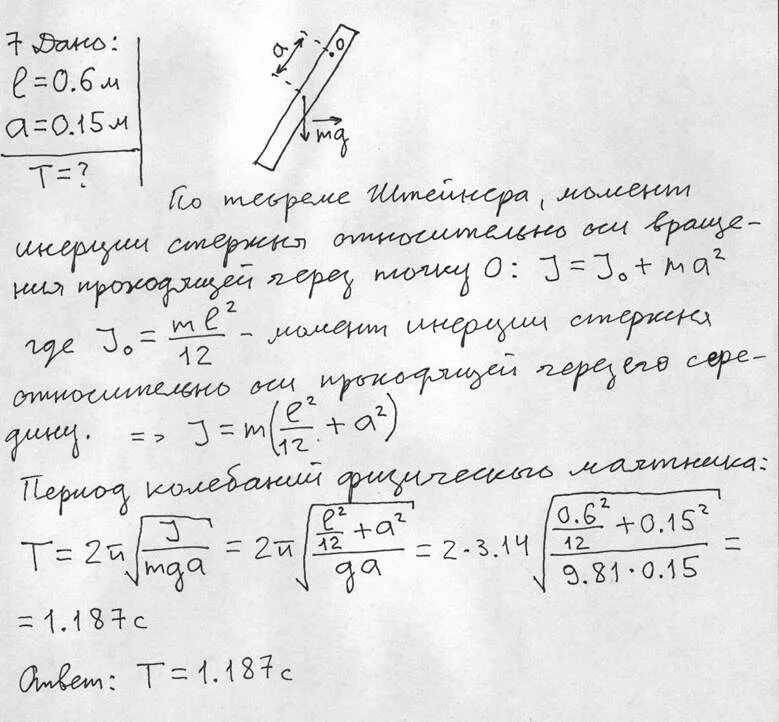 7 Дано:
l = 0.6 м
a = 0.15 м
T = ?
a
O
mg
По теореме Штейнера, момент
инерции стержня относительно оси враще-
ния проходящей через точку O: J = J₀ + ma²
где J₀ = ml²/12 - момент инерции стержня
относительно оси проходящей через его сере-
дину. => J = m(l²/12 + a²)
Период колебаний физического маятника:
T = 2π√(J/mga) = 2π√((l²/12 + a²)/ga) = 2·3.14√((0.6²/12 + 0.15²)/9.81·0.15) =
= 1.187 с
Ответ: T = 1.187 с